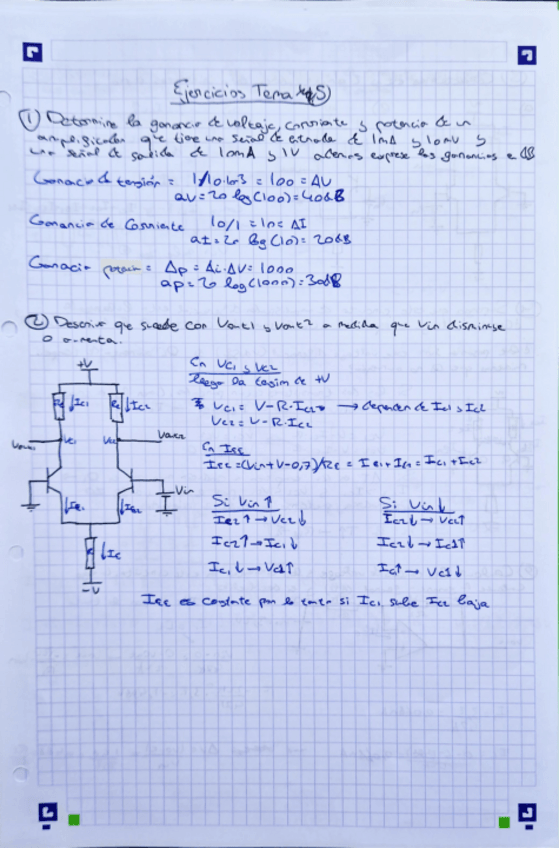 Ejercicios Tema 5
① Determine la ganancia de voltaje, corriente y potencia de un
amplificador que tiene una señal de entrada de 1mA y 10mV y
una señal de salida de 10mA y 1V ademas exprese las ganancias e dB
Ganacia de tensión = 1/10·10⁻³ = 100 = ΔV
av = 20 log(100) = 40dB
Ganancia de Corriente 10/1 = 10 = ΔI
aI = 20 log(10) = 20dB
Ganacia poten = Δp = Δi·ΔV = 1000
ap = 20 log(1000) = 30dB
② Describir que sucede con Vout1 y Vout2 a medida que Vin disminuye
o aumenta.
En VC1 y VC2
+V
VC1 = V-R·IC1 → dependen de IC1 y IC2
VC2 = V-R·IC2
En IEE
IEE = (Vin+V-0,7)/RE = IE1+IE2 = IC1+IC2
+V
IC1
IC2
VC1
VC2
Vout1
Vout2
Vin
IE1
IE2
-V
Si Vin↑
IC2↑→VC2↓
IC2↑→IC1↓
IC1↓→VC1↑
Si Vin↓
IC2↓→VC2↑
IC2↓→IC1↑
IC1↑→VC1↓
IEE es constante por lo tanto si IC1 sube IC2 baja